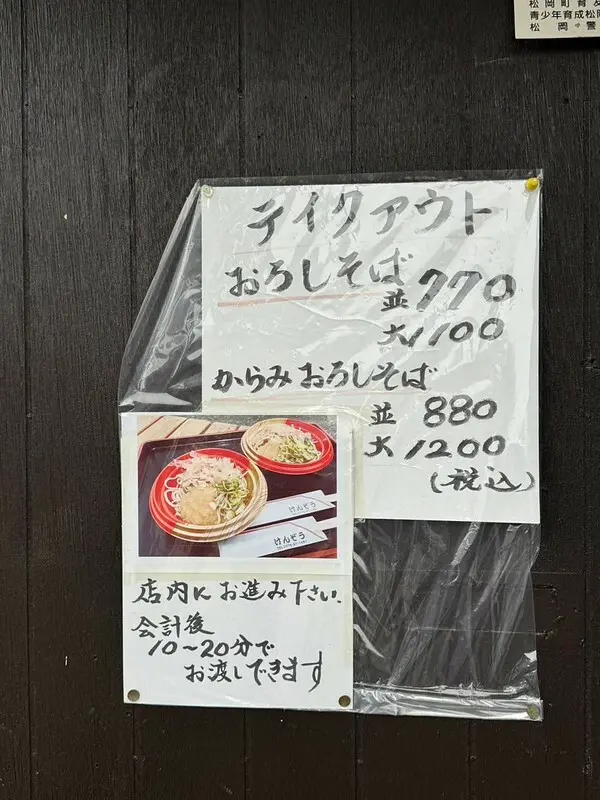 松岡町育友
青少年育成松岡
松岡警
テイクアウト
おろしそば
並 770
大 1100
からみおろしそば
並 880
大 1200
(税込)
けんぞう
けんぞう
店内にお進み下さい.
会計後
10~20分で
お渡しできます